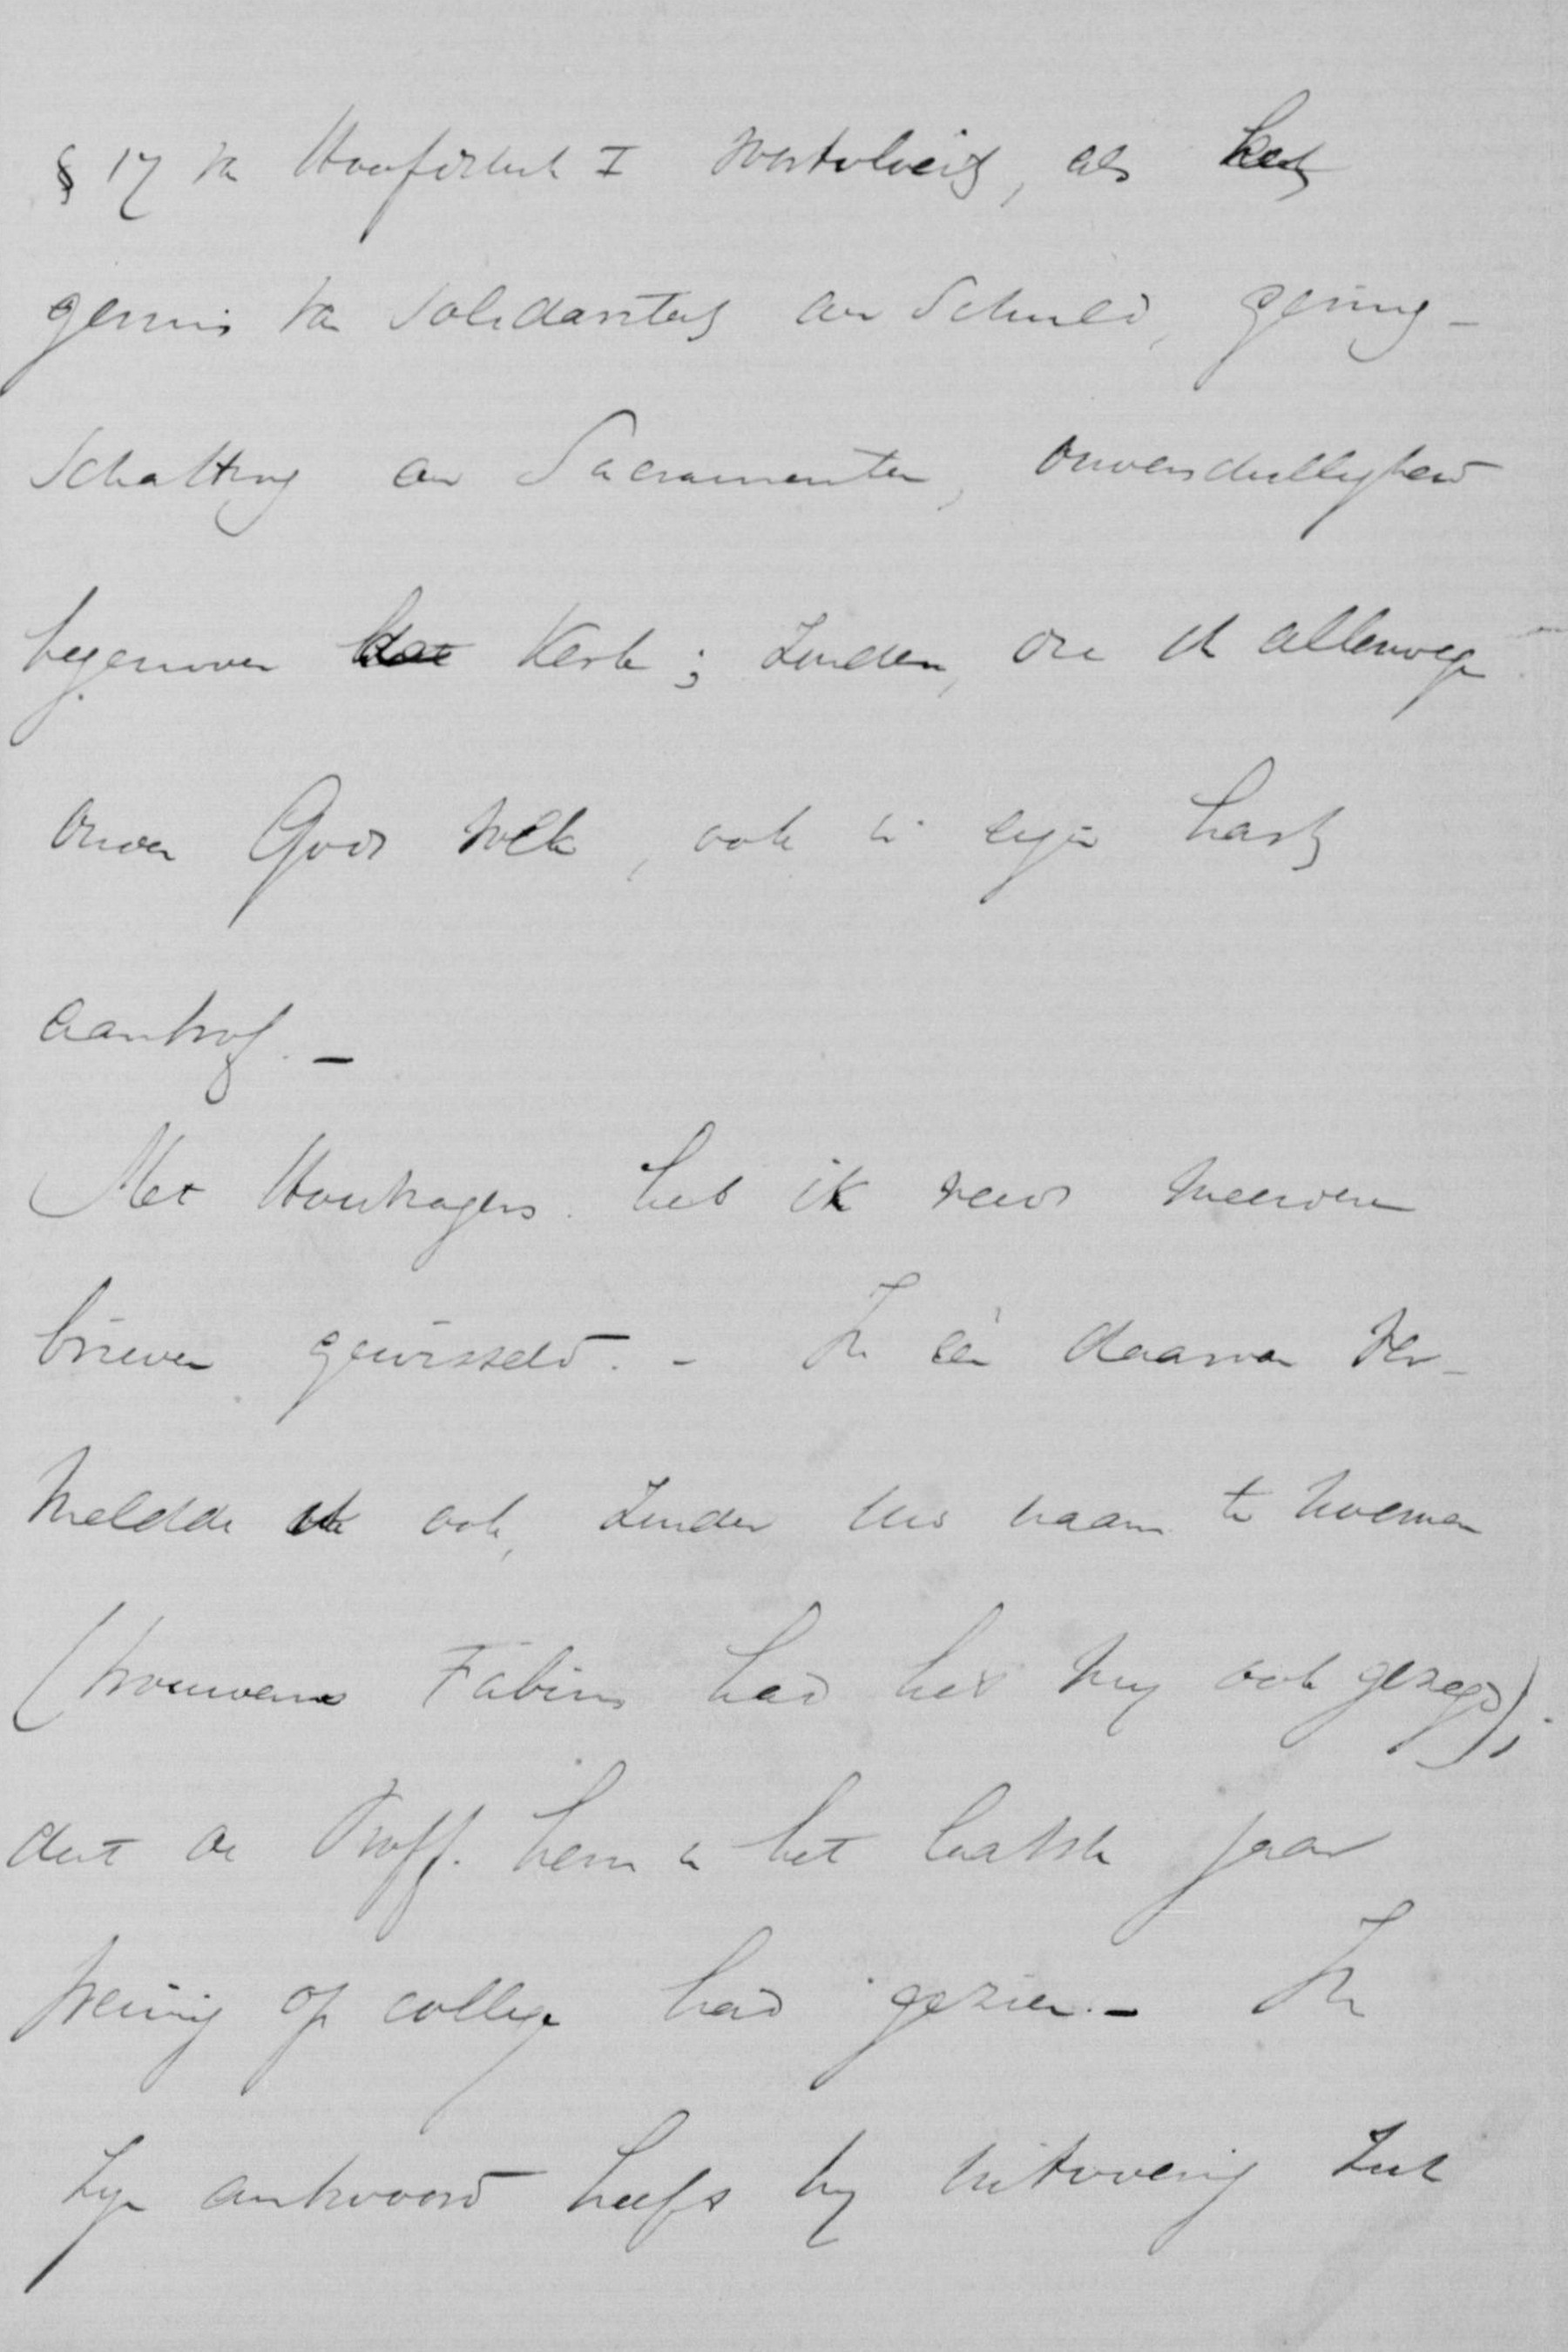 § 17 van Hoofdstuk I voortvloeit, als het
gemis van solidariteit aan schuld, gering-
schatting der Sacramenten, onverschilligheid
tegenover de Kerk; zonden, die ik allerwege
onder Gods volk, ook in eigen hart
aantrof. -
Met Houtzagers heb ik reeds meerdere
brieven gewisseld. - In één daarvan ver-
meldde ik ook, zonder uw naam te noemen
(trouwens Fabius had het mij ook gezegd);
dat de Proff. hem in het laatste jaar
weinig op college had gezien. - In
zijn antwoord heeft hij uitvoerig zich